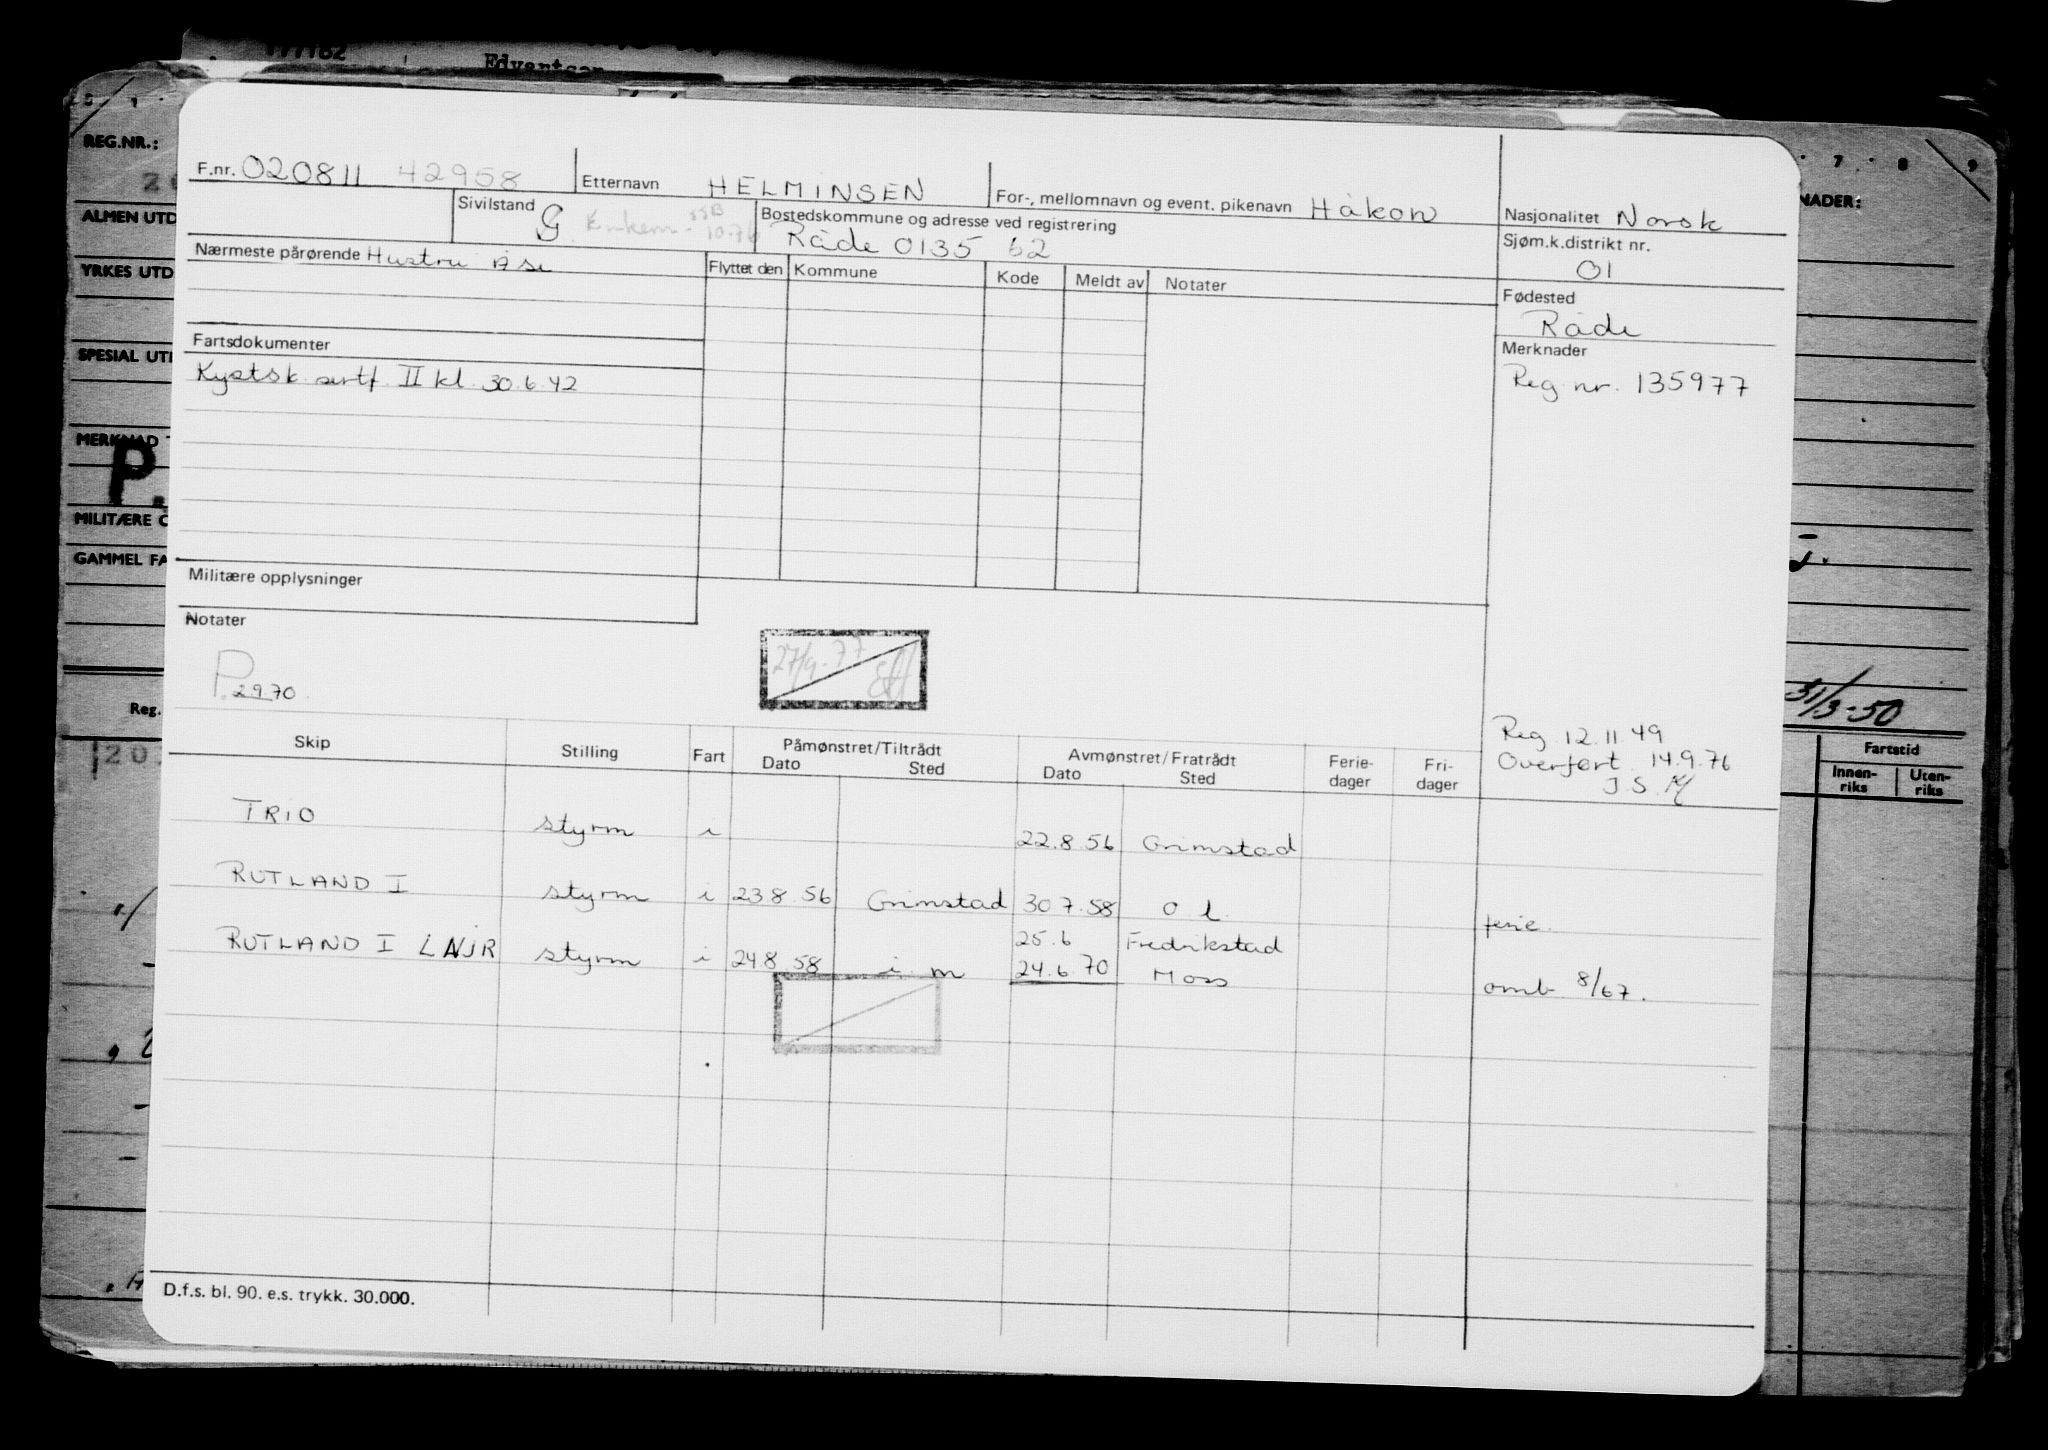 177162
Edvartsen
REG.NR.:
ALMEN UTD
YRKES UTD
SPESIAL UTD
MERKNAD
P.
MILITÆRE O
GAMMEL FA
Reg.
20
7 8 9
NADER:
31/3-50
Fartstid
Innen-riks
Uten-riks
F.nr. 020811 42958
Etternavn HELMINSEN
For-, mellomnavn og event. pikenavn Håkon
Nasjonalitet Norsk
Sivilstand G Enkem- SSB 10.76
Bostedskommune og adresse ved registrering
Råde 0135 62
Sjøm.k.distrikt nr.
01
Nærmeste pårørende Hustru Åse
Flyttet den Kommune Kode Meldt av Notater
Fødested
Råde
Fartsdokumenter
Kystsk. sertf. II kl. 30.6.42
Merknader
Reg. nr. 135977
Militære opplysninger
Notater
P. 2970.
27/9-77
Reg 12.11 49
Overført 14.9.76
J.S.
Skip Stilling Fart Påmønstret/Tiltrådt Dato Sted Avmønstret/Fratrådt Dato Sted Ferie-dager Fri-dager
TRIO styrm i 22.8.56 Grimstad
RUTLAND I styrm i 23.8.56 Grimstad 30.7.58 o l. ferie.
25.6 Fredrikstad
RUTLAND I LNJR styrm i 24.8.58 i m 24.6.70 Moss omb 8/67.
D.f.s. bl. 90. e.s. trykk. 30.000.